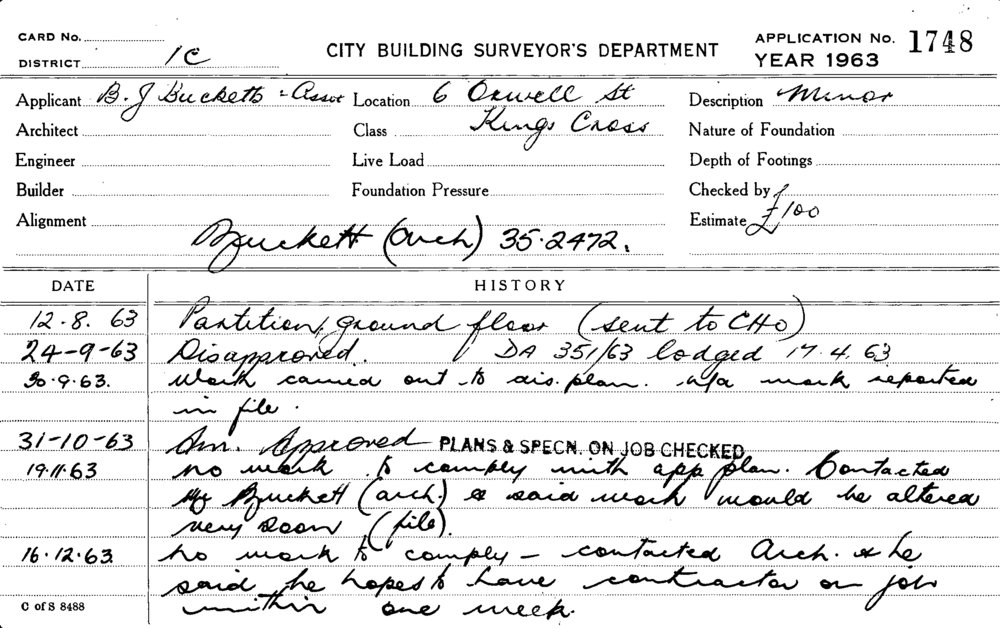 CARD No.
DISTRICT 1C
CITY BUILDING SURVEYOR'S DEPARTMENT
APPLICATION No. 1748
YEAR 1963
Applicant B. J Bucketts & Assoc Location 6 Orwell St Description Minor
Architect Class Kings Cross Nature of Foundation
Engineer Live Load Depth of Footings
Builder Foundation Pressure Checked by
Alignment Estimate £100
Buckett (Arch) 35.2472.
DATE HISTORY
12.8.63 Partition, ground floor (sent to CHO)
24-9-63 Disapproved. DA 351/63 lodged 17.4.63
30.9.63. Work carried out to dis. plan. u/a work reported
in file.
31-10-63 Am. Approved PLANS & SPECN. ON JOB CHECKED
19.11.63 No work to comply with app plan. Contacted
Mr Buckett (arch.) & said work would be altered
very soon (file).
16.12.63. No work to comply – contacted Arch. & he
said he hopes to have contractor on job
within one week.
C of S 8488